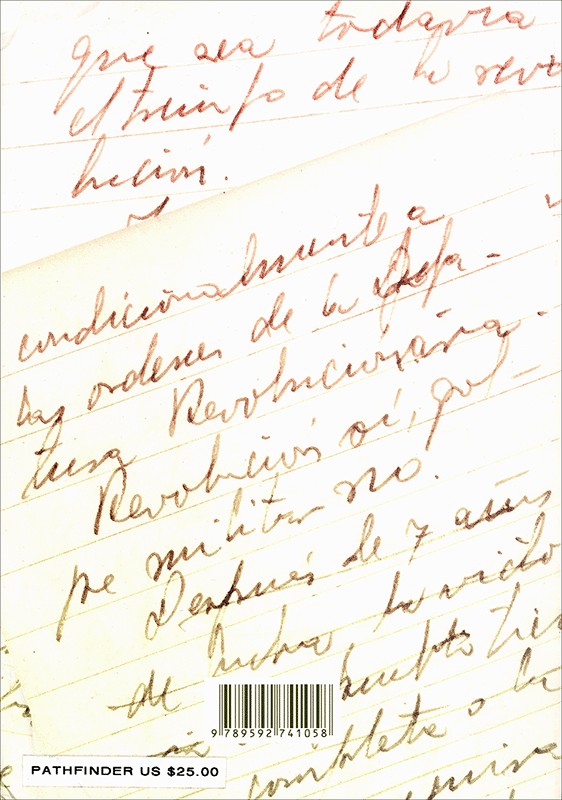 que sea todavía
el triunfo de la revo
lución.
condicionalmente a
las ordenes de la Jefa-
tura Revolucionaria.
Revolución sí, gol-
pe militar no.
Después de 7 años
de lucha, la victo
pueblo tien
completa o la
9 789592 741058
PATHFINDER US $25.00